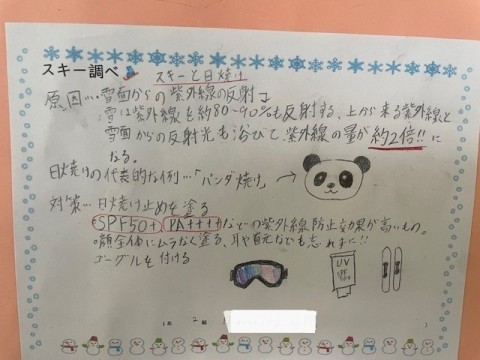 スキー調べ スキーと日焼け
原因…雪面からの紫外線の反射
雪は紫外線を約80~90%も反射する、上から来る紫外線と
雪面からの反射光も浴びて、紫外線の量が約2倍!!に
なる。
日焼けの代表的な例…「パンダ焼け」→
対策…日焼け止めを塗る
・SPF50+ PA++++などの紫外線防止効果が高いもの。
・顔全体にムラなく塗る、耳や首元なども忘れずに!!
ゴーグルを付ける
UV
1年 2組